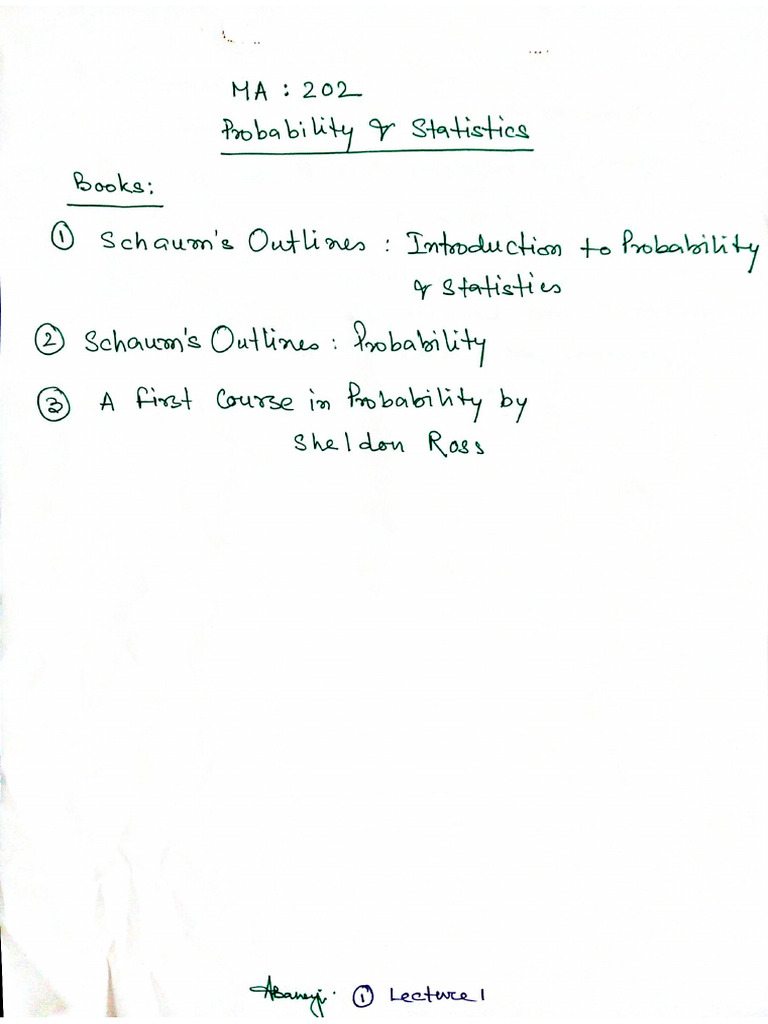 MA : 202
Probability & Statistics
Books:
① Schaum's Outlines : Introduction to Probability
& Statistics
② Schaum's Outlines : Probability
③ A First Course in Probability by
Sheldon Ross
① Lecture 1